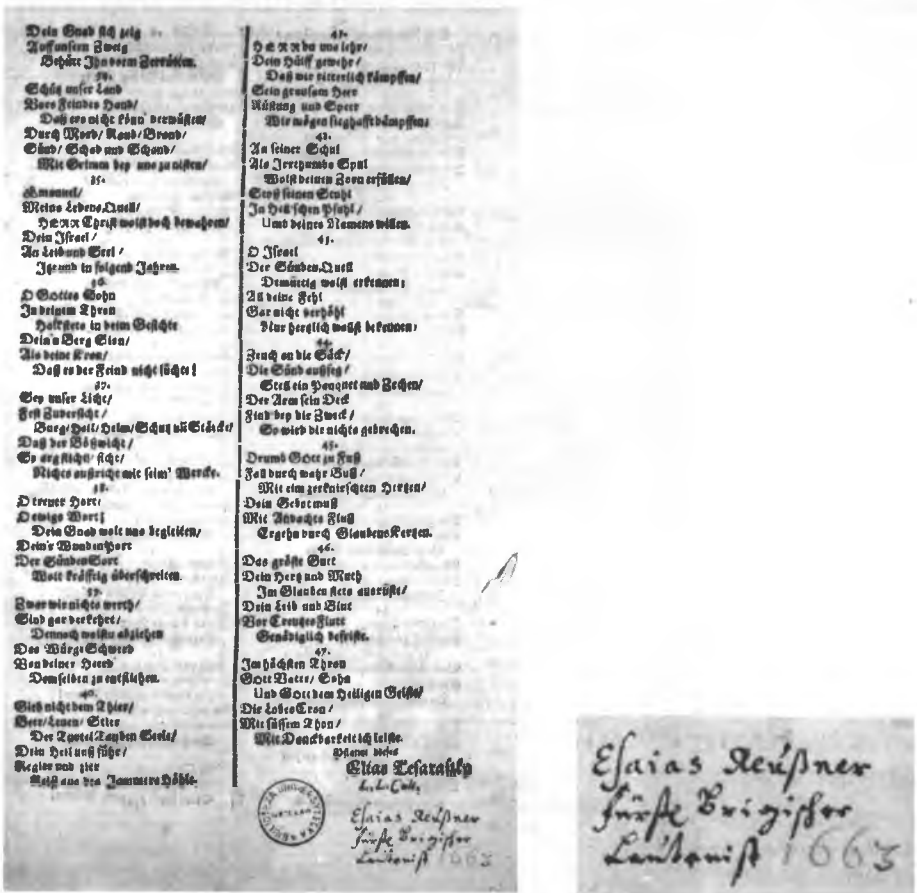 Dein Gnad sich zeig
Auff unsern Zweig
Behütt Ihn vorm Zerrütten.
34.
Schütz unser Land
Vors Feindes Hand/
Daß ers nicht könn' verwüsten/
Durch Mord/ Raub/ Brand/
Sünd/ Schad und Schand/
Mit Grimm bey uns zu nisten/
35.
Emanuel/
Meins Lebens Quell/
HERR Christ wolst doch bewahren/
Dein Israel/
An Leib und Seel/
Jtzt und in folgend Jahren.
36.
O Gottes Sohn
In deinem Thron
Halt stets in deim Gesichte
Dein'n Berg Sion/
Als deine Kron/
Daß es der Feind nicht sichte!
37.
Sey unser Licht/
Fest Zuversicht/
Burg/ Heil/ Helm/ Schutz uñ Stärcke/
Daß der Bößwicht/
So arglistig ficht/
Nichts außricht mit seim' Wercke.
38.
O treuer Hort/
O ewigs Wort/
Dein Gnad wolt uns begleiten/
Dein's Wunden Port
Der Sünden Sort
Wolt kräfftig überschreiten.
39.
Zwar wir nichts werth/
Sind gar verkehrt/
Dennoch wolstu abziehen
Das Würge Schwerd
Von deiner Heerd
Demselben zu entfliehen.
40.
Gieb nicht dem Thier/
Beer/ Leuen/ Stier
Der Turtel Tauben Seele/
Dein Heil uns führ/
Regier und zier
Reiß aus des Jammers Höhle.
41.
HERR du uns lehr/
Dein Hülff gewehr/
Daß wir ritterlich kämpffen/
Sein grausam Heer
Rüstung und Speer
Wir mögen sieghafft dämpffen:
42.
An seiner Schul
Als Irrthumbs Spul
Wolst deinen Zorn erfüllen/
Stoß seinen Stuhl
In Höll'schen Pfuhl/
Umb deines Namens willen.
43.
O Israel
Der Sünden Quell
Demüttig wolst erkennen;
All deine Fehl
Gar nicht verhöhl
Nur hertzlich wollst bekennen:
44.
Zeuch an die Säck/
Die Sünd außfeg/
Stell ein Panquet und Zechen/
Der Arm sein Deck
Find bey dir Zweck/
So wird dir nichts gebrechen.
45.
Drumb Gott zu Fuß
Fall durch wahr Buß/
Mit eim zerknirschten Hertzen/
Dein Gebet muß
Mit Andachts Fluß
Ergehn durch Glaubens Kertzen.
46.
Das gröste Gutt
Dein Hertz und Muth
Im Glauben stets ausrüste/
Dein Leib und Blut
Vor Creutzes Flutt
Genädiglich befriste.
47.
Im höchsten Thron
Gott Vatter/ Sohn
Und Gott dem Heiligen Geiste/
Die Lobes Cron/
Mit süssem Thon/
Mit Danckbarkeit ich leiste.
Elias Tesaransky
Esaias Reüßner
fürstl Brigischer
Lautenist 1663
Esaias Reüßner
fürstl Brigischer
Lautenist 1663